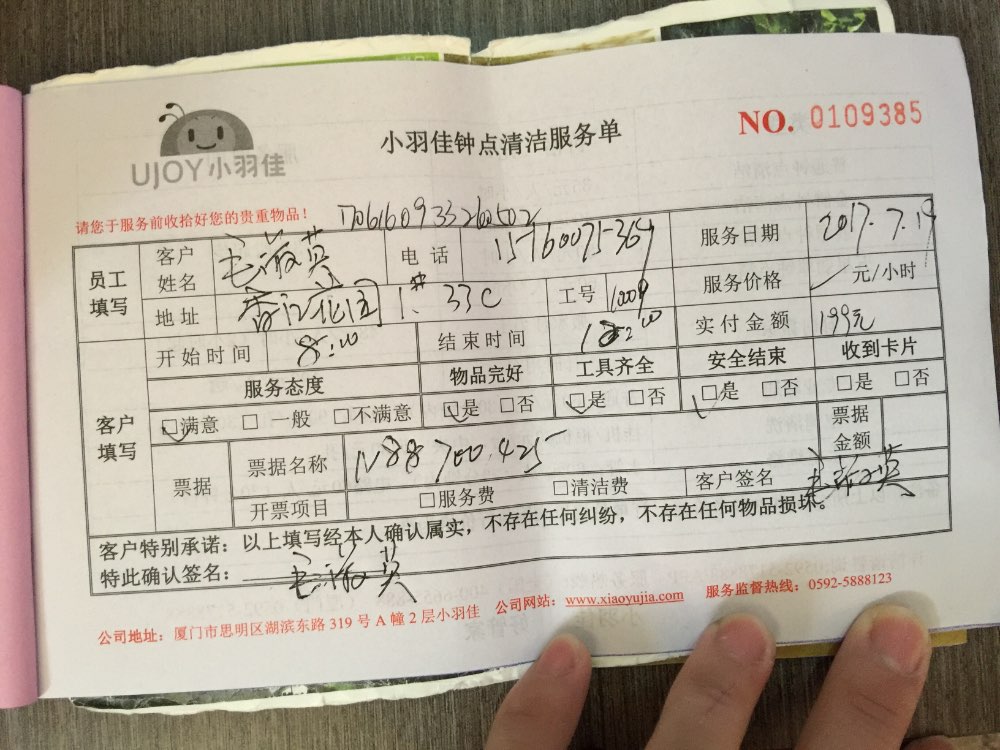 UJOY小羽佳
小羽佳钟点清洁服务单
NO. 0109385
请您于服务前收拾好您的贵重物品！
员工填写 客户姓名 电话 服务日期 2017.7.19
地址 1# 33C 工号 服务价格 元/小时
客户填写 开始时间 8:00 结束时间 实付金额 199元
服务态度 物品完好 工具齐全 安全结束 收到卡片
□满意 □一般 □不满意 □是 □否 □是 □否 □是 □否 □是 □否
票据 票据名称 N88700.425 票据金额
开票项目 □服务费 □清洁费 客户签名
客户特别承诺：以上填写经本人确认属实，不存在任何纠纷，不存在任何物品损坏。
特此确认签名：
公司地址：厦门市思明区湖滨东路319号A幢2层小羽佳 公司网站：www.xiaoyujia.com 服务监督热线：0592-5888123